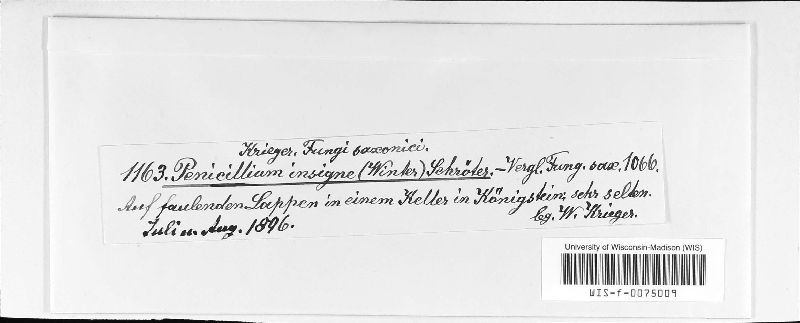 Krieger. Fungi saxonici.
1163. Penicillium insigne (Winter) Schröter. – Vergl. Fung. sax. 1066.
Auf faulenden Lappen in einem Keller in Königstein; sehr selten.
Juli u. Aug. 1896.
lg. W. Krieger.
University of Wisconsin-Madison (WIS)
WIS-f-0075009